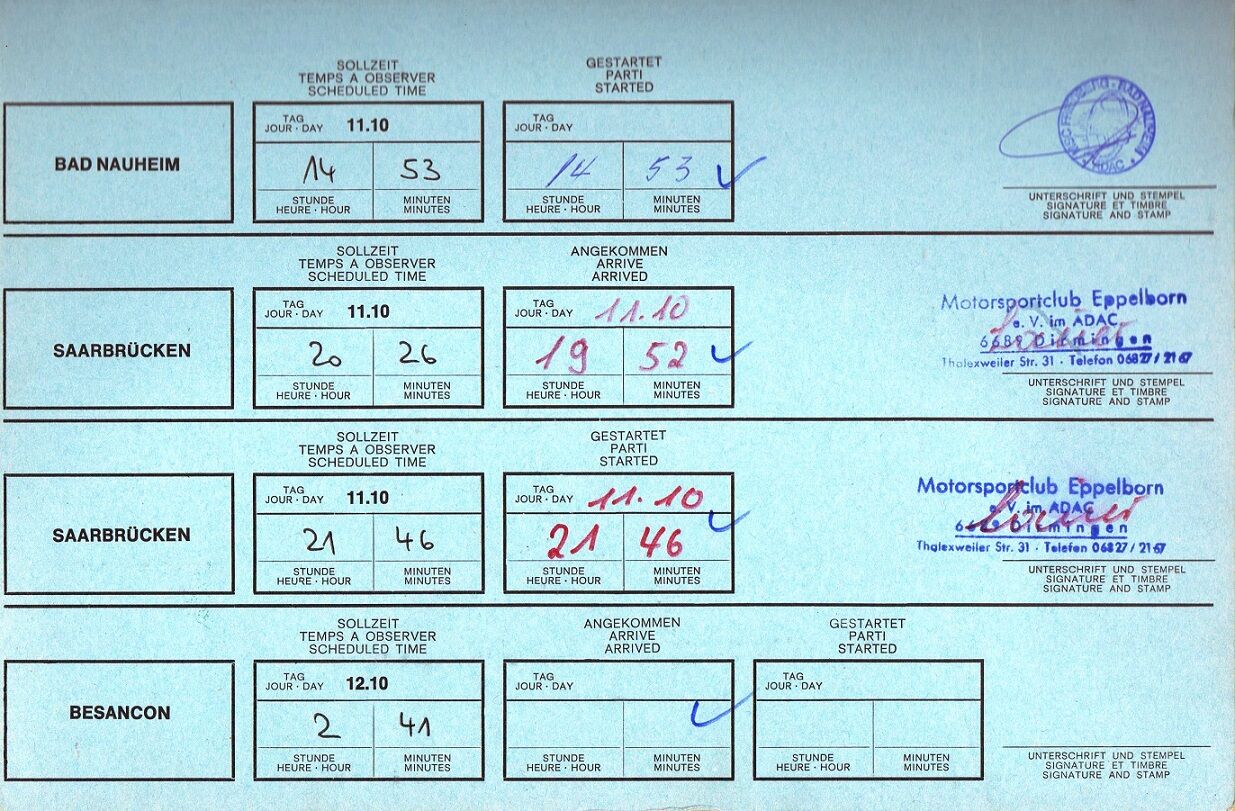 SOLLZEIT
TEMPS A OBSERVER
SCHEDULED TIME
GESTARTET
PARTI
STARTED
BAD NAUHEIM
TAG
JOUR · DAY 11.10
14 53
STUNDE MINUTEN
HEURE · HOUR MINUTES
TAG
JOUR · DAY
14 53
STUNDE MINUTEN
HEURE · HOUR MINUTES
MSC FRIEDBERG - BAD NAUHEIM
ADAC
UNTERSCHRIFT UND STEMPEL
SIGNATURE ET TIMBRE
SIGNATURE AND STAMP
SOLLZEIT
TEMPS A OBSERVER
SCHEDULED TIME
ANGEKOMMEN
ARRIVE
ARRIVED
SAARBRÜCKEN
TAG
JOUR · DAY 11.10
20 26
STUNDE MINUTEN
HEURE · HOUR MINUTES
TAG
JOUR · DAY 11.10
19 52
STUNDE MINUTEN
HEURE · HOUR MINUTES
Motorsportclub Eppelborn
e. V. im ADAC
6689 Dirmingen
Thalexweiler Str. 31 · Telefon 06827 / 2167
UNTERSCHRIFT UND STEMPEL
SIGNATURE ET TIMBRE
SIGNATURE AND STAMP
SOLLZEIT
TEMPS A OBSERVER
SCHEDULED TIME
GESTARTET
PARTI
STARTED
SAARBRÜCKEN
TAG
JOUR · DAY 11.10
21 46
STUNDE MINUTEN
HEURE · HOUR MINUTES
TAG
JOUR · DAY 11.10
21 46
STUNDE MINUTEN
HEURE · HOUR MINUTES
Motorsportclub Eppelborn
e. V. im ADAC
Dirmingen
Thalexweiler Str. 31 · Telefon 06827 / 2167
UNTERSCHRIFT UND STEMPEL
SIGNATURE ET TIMBRE
SIGNATURE AND STAMP
SOLLZEIT
TEMPS A OBSERVER
SCHEDULED TIME
ANGEKOMMEN
ARRIVE
ARRIVED
GESTARTET
PARTI
STARTED
BESANCON
TAG
JOUR · DAY 12.10
2 41
STUNDE MINUTEN
HEURE · HOUR MINUTES
TAG
JOUR · DAY
STUNDE MINUTEN
HEURE · HOUR MINUTES
TAG
JOUR · DAY
STUNDE MINUTEN
HEURE · HOUR MINUTES
UNTERSCHRIFT UND STEMPEL
SIGNATURE ET TIMBRE
SIGNATURE AND STAMP